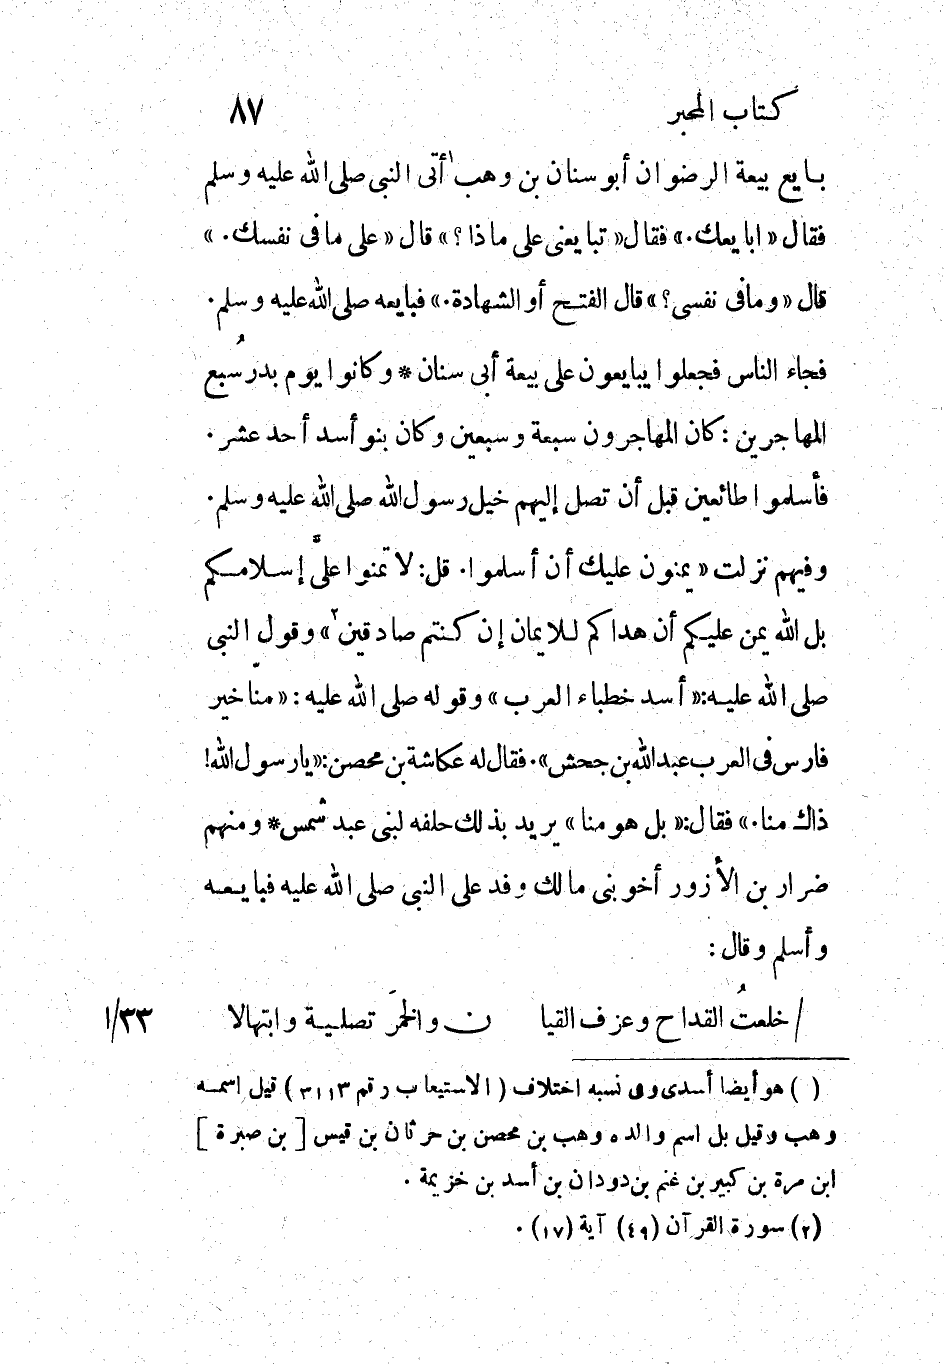 كتاب المحبر ٨٧
بايع بيعة الرضوان أبو سنان بن وهب١ أتى النبى صلى الله عليه وسلم
فقال « ابايعك.» فقال« تبايعنى على ماذا ؟ » قال « على مافى نفسك. »
قال « ومافى نفسى؟ » قال الفتح أو الشهادة.» فبايعه صلى الله عليه وسلم.
فجاء الناس فجعلوا يبايعون على بيعة أبى سنان * وكانوا يوم بدر سُبع
المهاجرين : كان المهاجرون سبعة وسبعين وكان بنو أسد أحد عشر .
فأسلموا طائعين قبل أن تصل إليهم خيل رسول الله صلى الله عليه وسلم.
وفيهم نزلت « يمنون عليك أن أسلموا. قل: لا تمنوا علىّ إسلامكم
بل الله يمن عليكم أن هداكم للايمان إن كنتم صادقين٢» وقول النبى
صلى الله عليه:« أسد خطباء العرب » وقوله صلى الله عليه : « منّا خير
فارس فى العرب عبدالله بن جحش». فقال له عكاشة بن محصن:«يارسول الله!
ذاك منا.» فقال:« بل هو منا » يريد بذلك حلفه لبنى عبد شمس* ومنهم
ضرار بن الأزور أخو بنى مالك وفد على النبى صلى الله عليه فبايعه
وأسلم وقال :
/ خلعتُ القداح وعزف القيا ن والخمرَ تصلية وابتهالا ١/٣٣
( ) هو أيضا أسدى وفى نسبه اختلاف ( الاستيعاب رقم ٣١١٣ ) قيل اسمه
وهب وقيل بل اسم والده وهب بن محصن بن حرثان بن قيس [ بن صبرة ]
ابن مرة بن كبير بن غنم بن دودان بن أسد بن خزيمة .
(٢) سورة القرآن (٤٩) آية (١٧) .